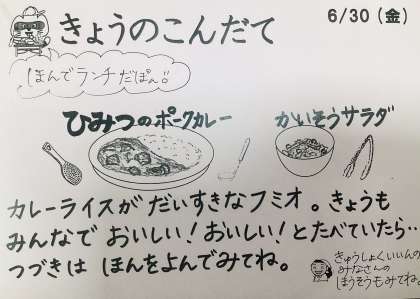 きょうのこんだて
6/30(金)
ほんでランチだぽん!!
ひみつのポークカレー
かいそうサラダ
カレーライスが だいすきなフミオ。きょうも
みんなで おいしい!おいしい!とたべていたら‥
つづきは ほんをよんでみてね。
きゅうしょくいいんの
みなさんの
ほうそうもみてね。